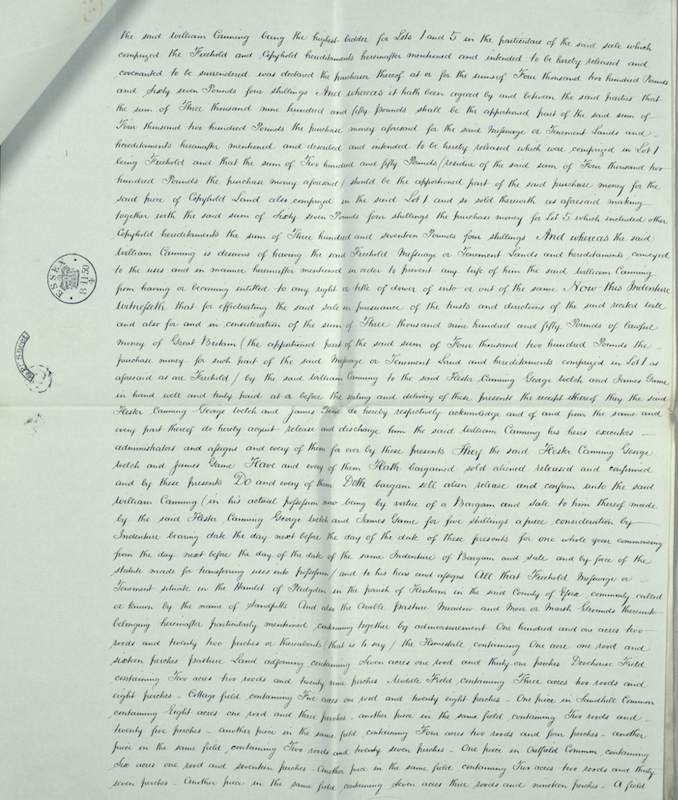 the said William Canning being the highest bidder for Lots 1 and 5 in the particulars of the said sale which
comprized the Freehold and Copyhold hereditaments hereinafter mentioned and intended to be hereby released and
covenanted to be surrendered was declared the purchaser thereof at or for the sums of Four thousand two hundred Pounds
and Sixty seven Pounds four shillings And whereas it hath been agreed by and between the said parties that
the sum of Three thousand nine hundred and fifty Pounds shall be the apportioned part of the said sum of
Four thousand two hundred Pounds the purchase money aforesaid for the said Messuage or Tenement Lands and
hereditaments hereinafter mentioned and described and intended to be hereby released which were comprized in Lot 1
being Freehold and that the sum of Two hundred and fifty Pounds (residue of the said sum of Four thousand two
hundred Pounds the purchase money aforesaid) should be the apportioned part of the said purchase money for the
said piece of Copyhold Land also comprized in the said Lot 1 and so sold therewith as aforesaid making
together with the said sum of Sixty seven Pounds four shillings the purchase money for Lot 5 which included other
Copyhold hereditaments the sum of Three hundred and seventeen Pounds four shillings And whereas the said
William Canning is desirous of having the said Freehold Messuage or Tenement Lands and hereditaments conveyed
to the uses and in manner hereinafter mentioned in order to prevent any wife of him the said William Canning
from having or becoming entitled to any right or title of dower of into or out of the same Now this Indenture
Witnesseth that for effectuating the said sale in pursuance of the trusts and directions of the said recited will
and also for and in consideration of the sum of Three thousand nine hundred and fifty Pounds of lawful
money of Great Britain (the apportioned part of the said sum of Four thousand two hundred Pounds the
purchase money for such part of the said Messuage or Tenement Land and hereditaments comprized in Lot 1 as
aforesaid as are Freehold) by the said William Canning to the said Hester Canning George Welch and James Game
in hand well and truly paid at or before the sealing and delivery of these presents the receipt whereof they the said
Hester Canning George Welch and James Game do hereby respectively acknowledge and of and from the same and
every part thereof do hereby acquit release and discharge him the said William Canning his heirs executors
administrators and assigns and every of them for ever by these presents They the said Hester Canning George
Welch and James Game Have and every of them Hath bargained sold aliened released and confirmed
and by these presents Do and every of them Doth bargain sell alien release and confirm unto the said
William Canning (in his actual possession now being by virtue of a Bargain and Sale to him thereof made
by the said Hester Canning George Welch and James Game for five shillings a piece consideration by
Indenture bearing date the day next before the day of the date of these presents for one whole year commencing
from the day next before the day of the date of the same Indenture of Bargain and sale and by force of the
statute made for transferring uses into possession) and to his heirs and assigns All that Freehold Messuage or
Tenement situate in the Hamlet of Pledgdon in the parish of Henham in the said County of Essex commonly called
or known by the name of Sandpitts And also the Arable Pasture Meadow and Moor or Marsh Grounds thereunto
belonging hereinafter particularly mentioned containing together by admeasurement One hundred and one acres two
roods and twenty two perches or thereabouts (that is to say) the Homestall containing One acre one rood and
sixteen perches Pasture Land adjoining containing Seven acres one rood and thirty one perches Dovehouse Field
containing Two acres two roods and twenty nine perches Middle Field containing Three acres two roods and
eight perches - Cottage field containing Five acres one rood and twenty eight perches - One piece in Sandhill Common
containing Eight acres one rood and three perches - another piece in the same field containing Two roods and
twenty five perches - another piece in the same field containing Four acres two roods and four perches - another
piece in the same field containing Two roods and twenty seven perches - One piece in Outfield Common containing
Six acres one rood and seventeen perches - Another piece in the same field containing Two acres two roods and thirty
seven perches - Another piece in the same field containing Seven acres three roods and nineteen perches - A field
ESSEX